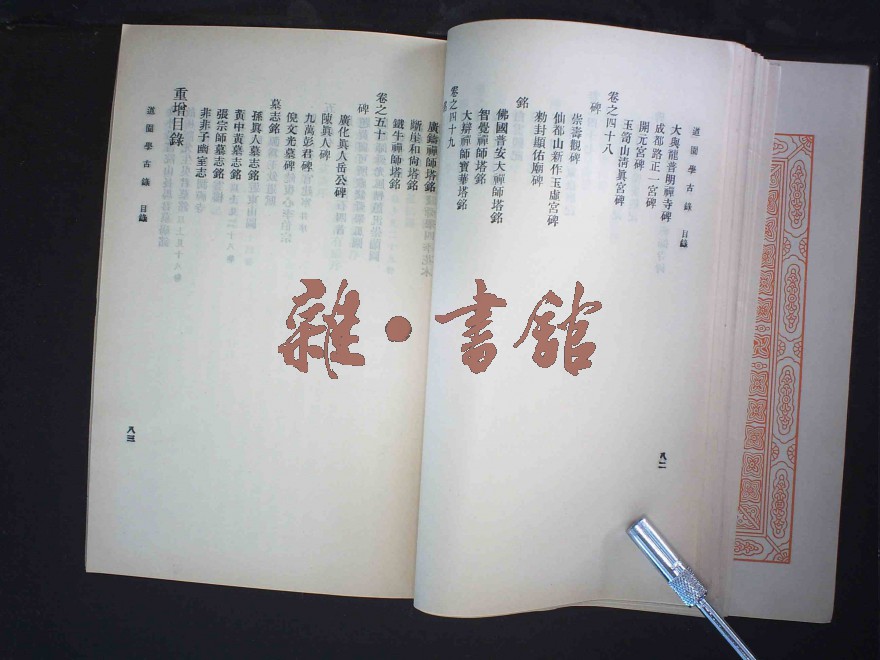 道園學古錄 目錄
大興龍普明禪寺碑
成都路正一宮碑
開元宮碑
玉笥山清眞宮碑
卷之四十八
碑
崇壽觀碑
仙都山新作玉虛宮碑
勑封顯佑廟碑
銘
佛國普安大禪師塔銘
智覺禪師塔銘
大辯禪師寶華塔銘
卷之四十九
銘
八二
廣鑄禪師塔銘
斷崖和尚塔銘
鐵牛禪師塔銘
卷之五十
碑
廣化眞人岳公碑
陳眞人碑
九萬彭君碑
倪文光墓碑
墓志銘
孫眞人墓志銘
黃中黃墓志銘
張宗師墓志銘
非非子幽室志
重增目錄
道園學古錄 目錄
八三
雜·書館